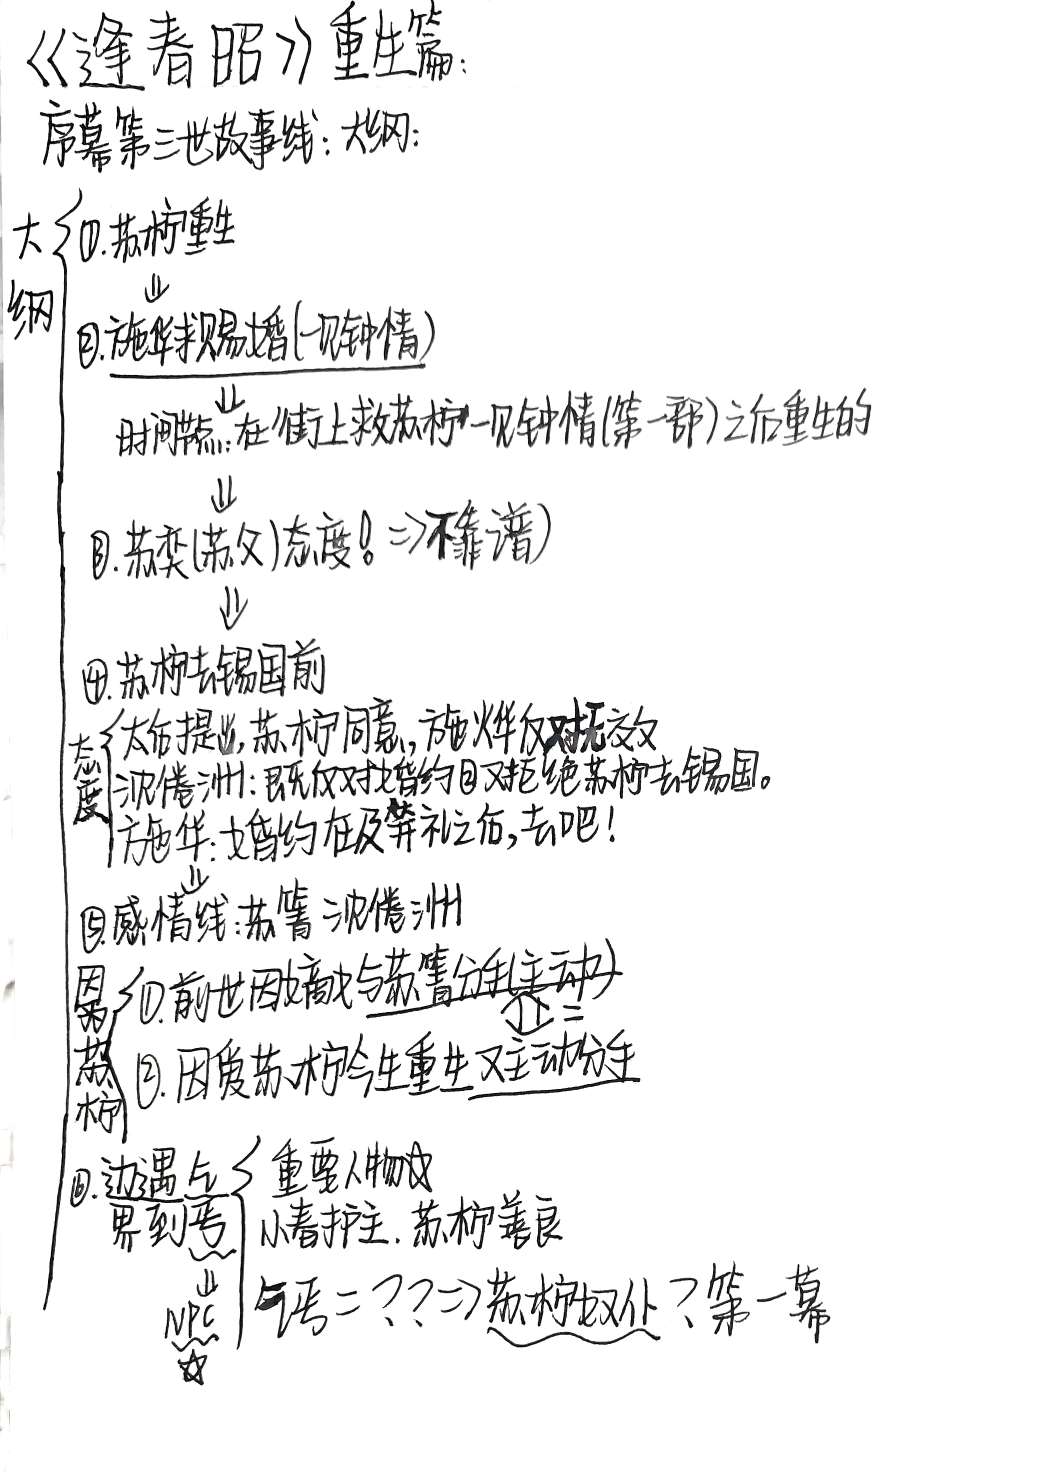 《逢春昭》重生篇：
序幕第三世故事线：大纲：
大纲
①.苏柠重生
⇓
②.施华求赐婚(一见钟情)
⇓
时间节点：在街上救苏柠一见钟情(第一部)之后重生的
⇓
③.苏奕(苏父)态度！⇒不靠谱)
⇓
④.苏柠去锡国前
态度
太后提出，苏柠同意，施烨反对无效
沈倦洲：既反对婚约②又拒绝苏柠去锡国。
施华：婚约在及笄礼之后，去吧！
⇓
⑤.感情线：苏箐 沈倦洲
因为苏柠
①.前世因嫡女与苏箐分手(主动)
⇕ =
②.因爱苏柠今生重生又主动分手
⑥.边界遇到乞丐
⇓
NPC
☆
重要人物☆
小春护主.苏柠善良
乞丐=？？⇒苏柠奴仆？第一幕